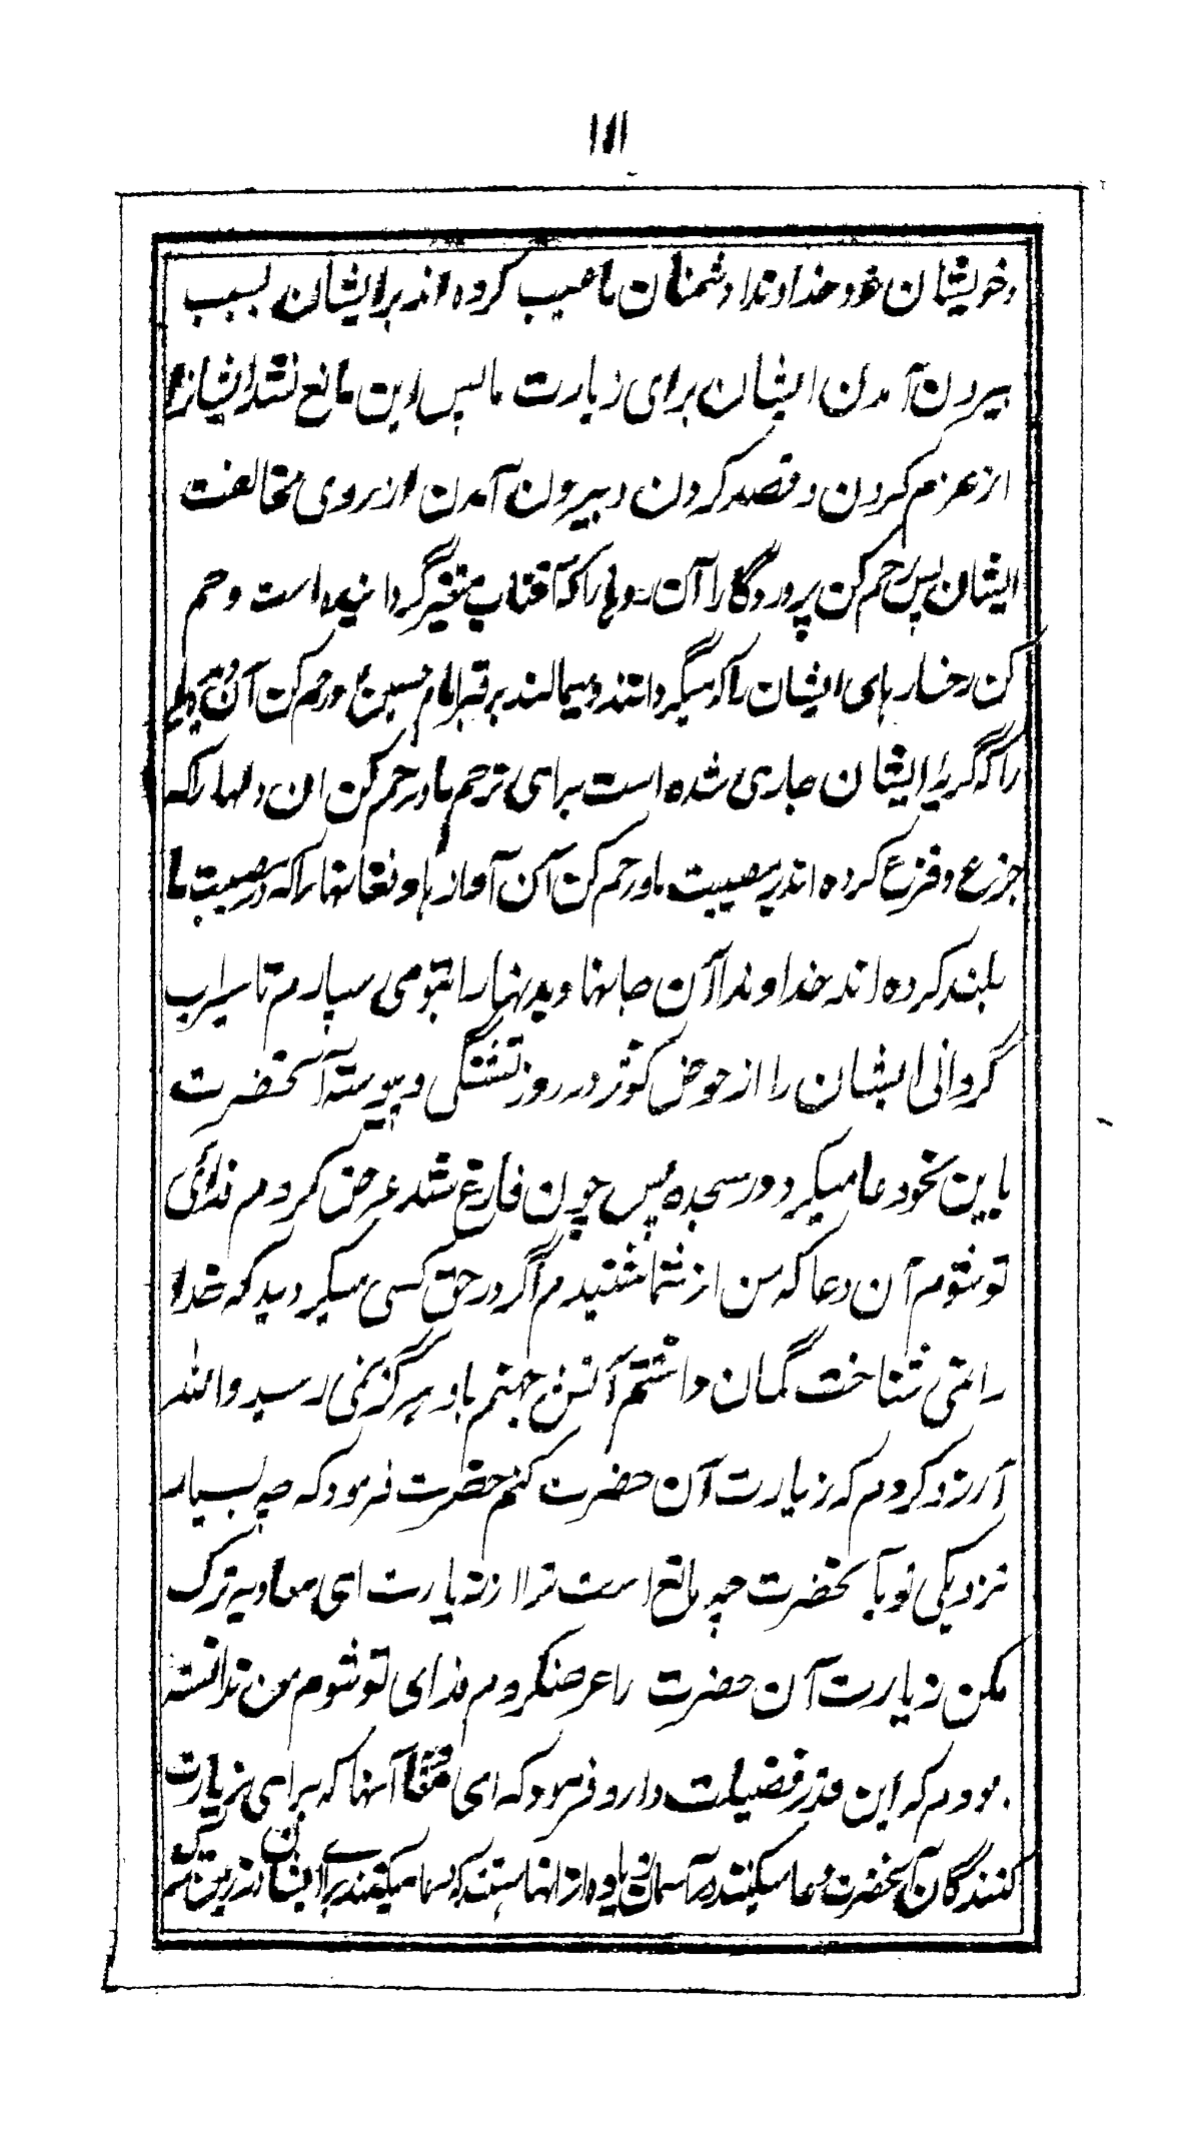 ۱۸۱
وخویشان خود خداوندا دشمنان ما عیب کرده اند برایشان بسبب
بیرون آمدن ایشان برای زیارت ما پس این مانع نشد ایشانرا
از عزم کردن و قصد کردن و بیرون آمدن از روی مخالفت
ایشان پس رحم کن پروردگارا آن روها را که آفتاب متغیر گردانیده است و رحم
کن رخسارهای ایشان را که میگردانند و میمالند بر قبر امام حسین ع و رحم کن آن
را که گریهٔ ایشان جاری شده است برای ترحم ما و رحم کن ان دلها را که
جزع و فزع کرده اند در مصیبت ما و رحم کن آن آوازها و فغانها را که در مصیبت ما
بلند کرده اند خداوندا آن جانها و بدنها را بتو می سپارم تا سیراب
گردانی ایشان را از حوض کوثر در روز تشنگی و پیوسته آنحضرت
باین نحو دعا میکرد در سجده پس چون فارغ شد عرض کردم فدای
تو شوم آن دعا که من از شما شنیدم اگر در حق کسی میکردید که خدا
را نمی شناخت گمان داشتم آتش جهنم باو هرگز نمی رسید والله
آرزو کردم که زیارت آن حضرت کنم حضرت فرمود که چه بسیار
نزدیکی تو بآنحضرت چه مانع است ترا از زیارت ای معاویه ترک
مکن زیارت آن حضرت را عرضکردم فدای تو شوم من ندانسته
بودم که این قدر فضیلت دارد فرمود که ای آنها که برای زیارت
کنندگان آنحضرت دعا میکنند در آسمان زیاده از انها هستند که دعا میکنند برای ایشان در زمین